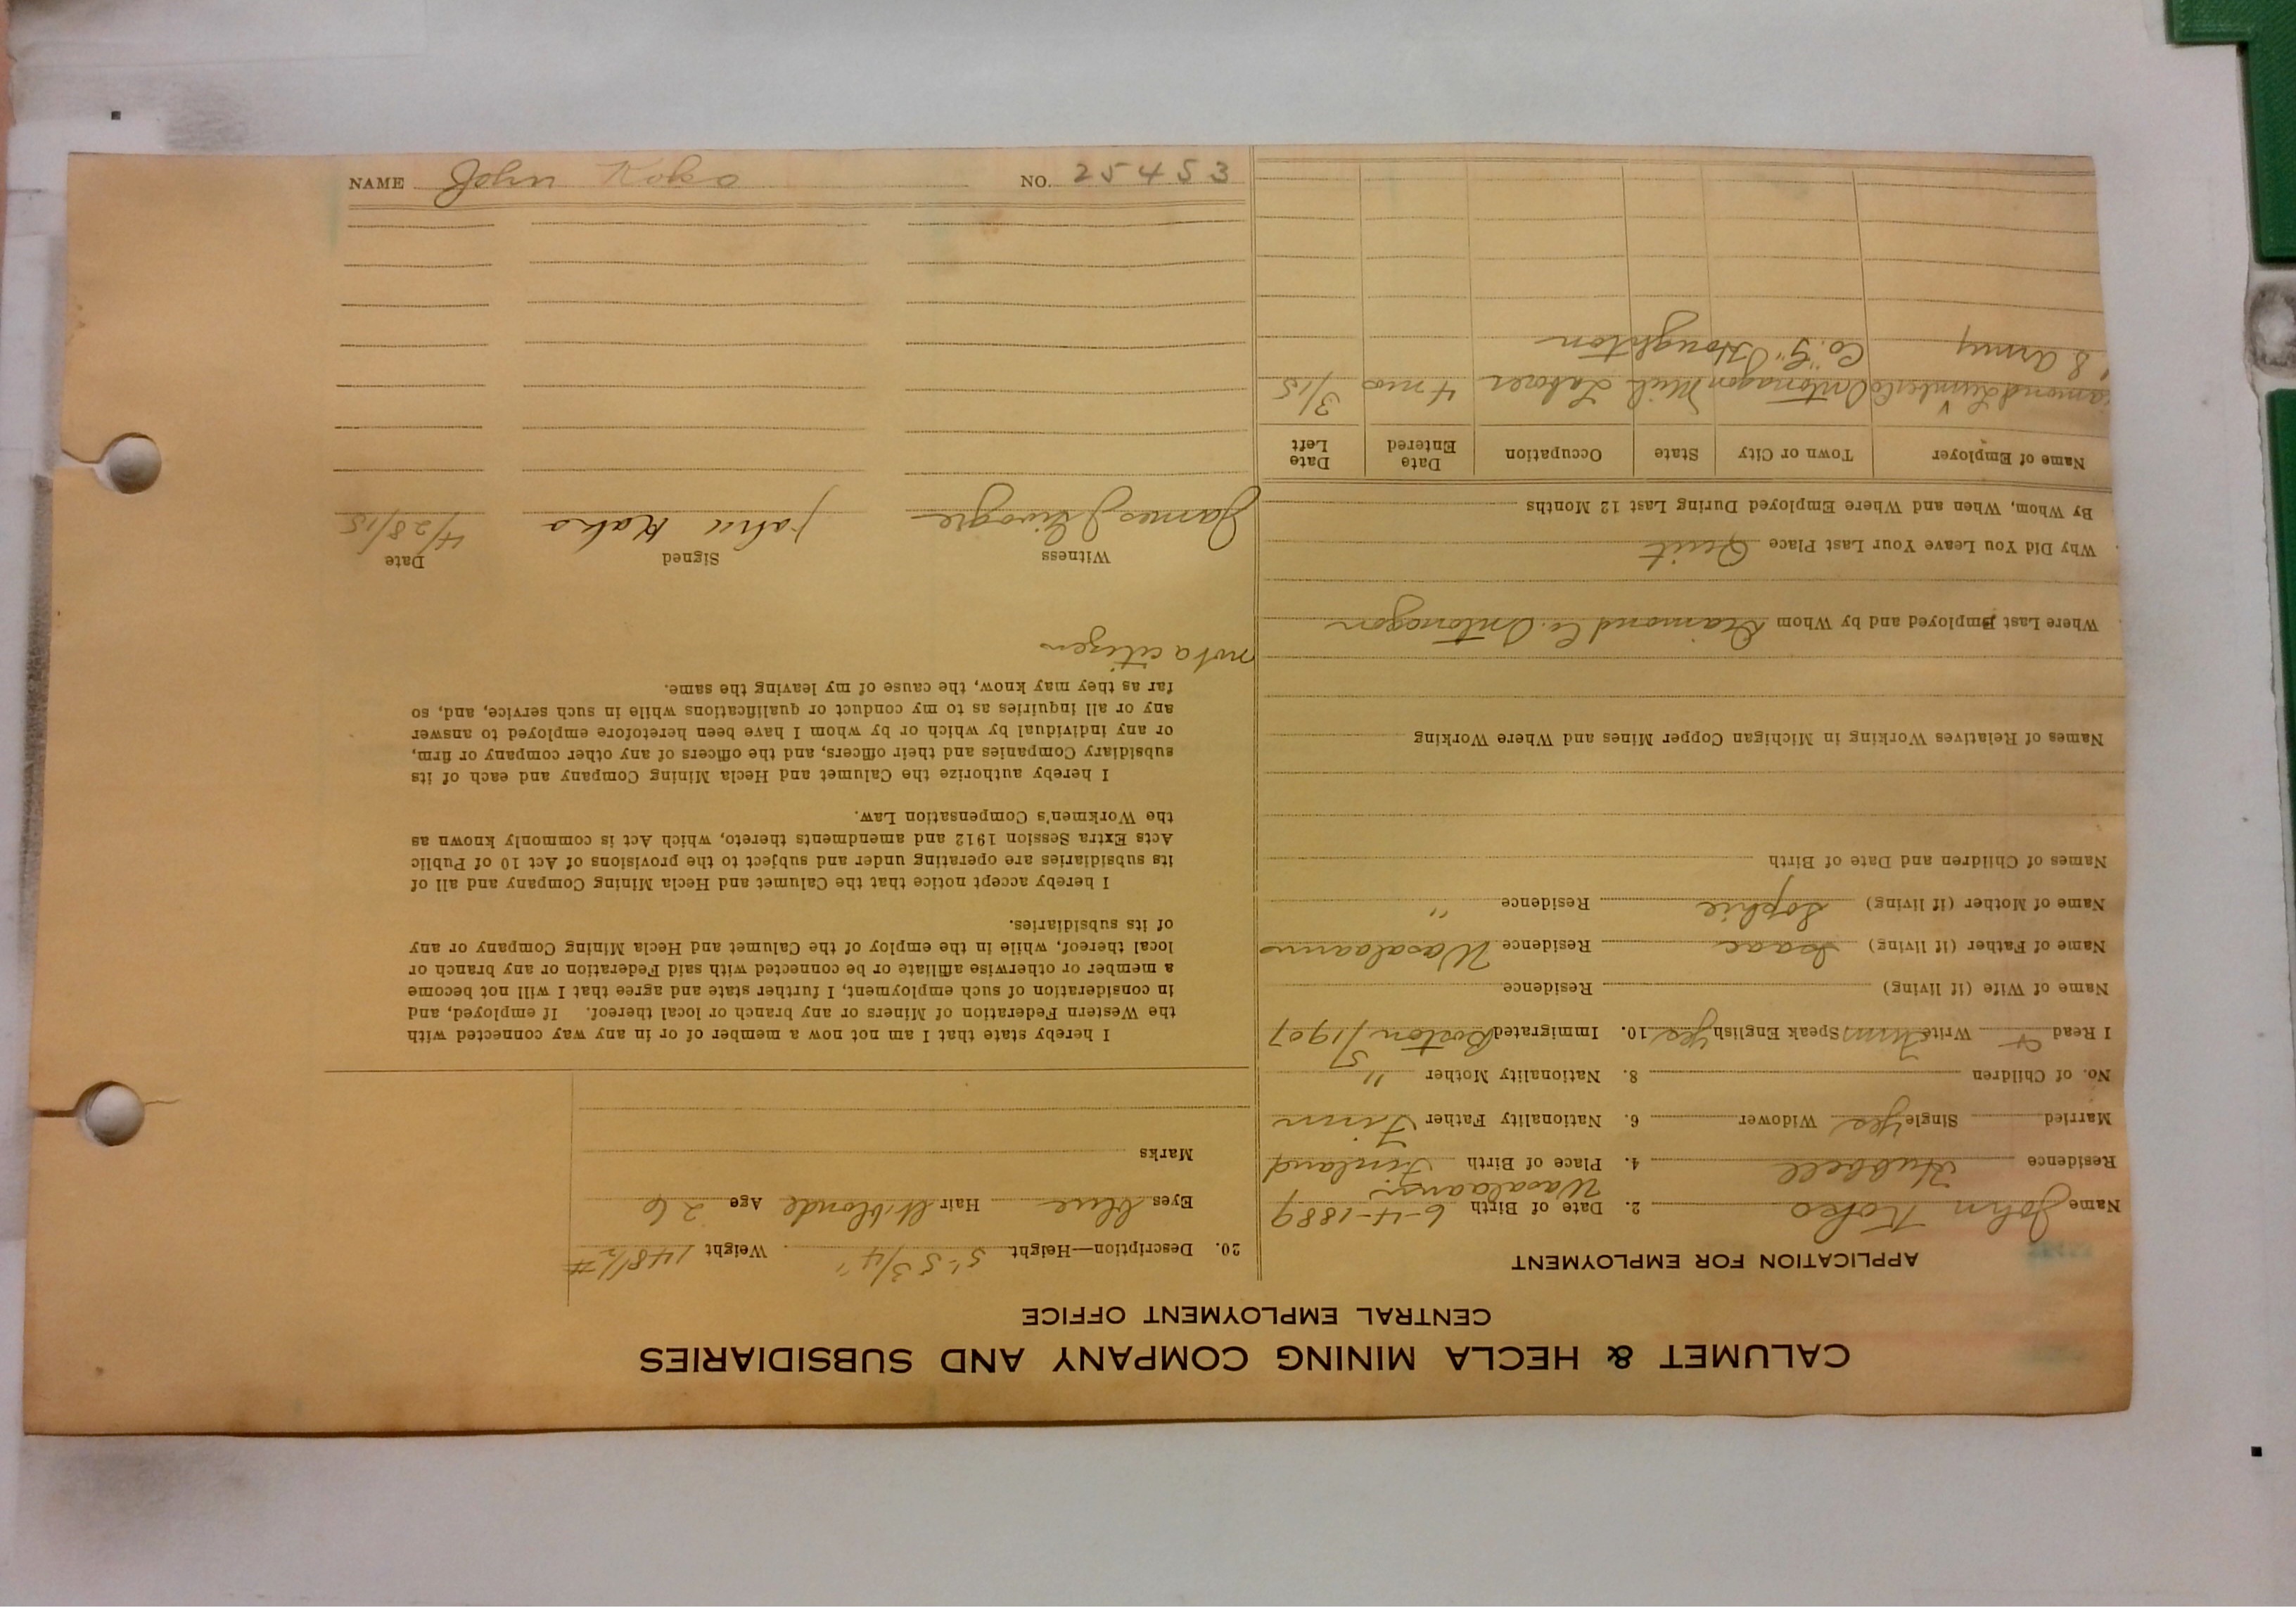 CALUMET & HECLA MINING COMPANY AND SUBSIDIARIES
CENTRAL EMPLOYMENT OFFICE
APPLICATION FOR EMPLOYMENT
Name John Koko 2. Date of Birth 6-4-1889
Residence Hubbell 4. Place of Birth Wasalaani Finland
Married Single Yes Widower 6. Nationality Father Finn
No. of Children 8. Nationality Mother "
I Read & Write Finn Speak English Yes 10. Immigrated Boston 5/1907
Name of Wife (if living) Residence
Name of Father (if living) Isaac Residence Wasalaani
Name of Mother (if living) Sophie Residence "
Names of Children and Date of Birth
Names of Relatives Working in Michigan Copper Mines and Where Working
Where Last Employed and by Whom Diamond Co. Ontonagon
Why Did You Leave Your Last Place Quit
By Whom, When and Where Employed During Last 12 Months
Name of Employer Town or City State Occupation Date Entered Date Left
amond Lumber Co Ontonagon Mich Laborer 4 mos 3/15
S Army Co. "G" Houghton
20. Description—Height 5'-5 3/4" Weight 148 1/2 #
Eyes blue Hair lt. blonde Age 26
Marks
I hereby state that I am not now a member of or in any way connected with
the Western Federation of Miners or any branch or local thereof. If employed, and
in consideration of such employment, I further state and agree that I will not become
a member or otherwise affiliate or be connected with said Federation or any branch or
local thereof, while in the employ of the Calumet and Hecla Mining Company or any
of its subsidiaries.
I hereby accept notice that the Calumet and Hecla Mining Company and all of
its subsidiaries are operating under and subject to the provisions of Act 10 of Public
Acts Extra Session 1912 and amendments thereto, which Act is commonly known as
the Workmen's Compensation Law.
I hereby authorize the Calumet and Hecla Mining Company and each of its
subsidiary Companies and their officers, and the officers of any other company or firm,
or any individual by which or by whom I have been heretofore employed to answer
any or all inquiries as to my conduct or qualifications while in such service, and, so
far as they may know, the cause of my leaving the same.
not a citizen
Witness Signed Date
James J John Koko 4/28/15
NAME John Koko NO. 25453